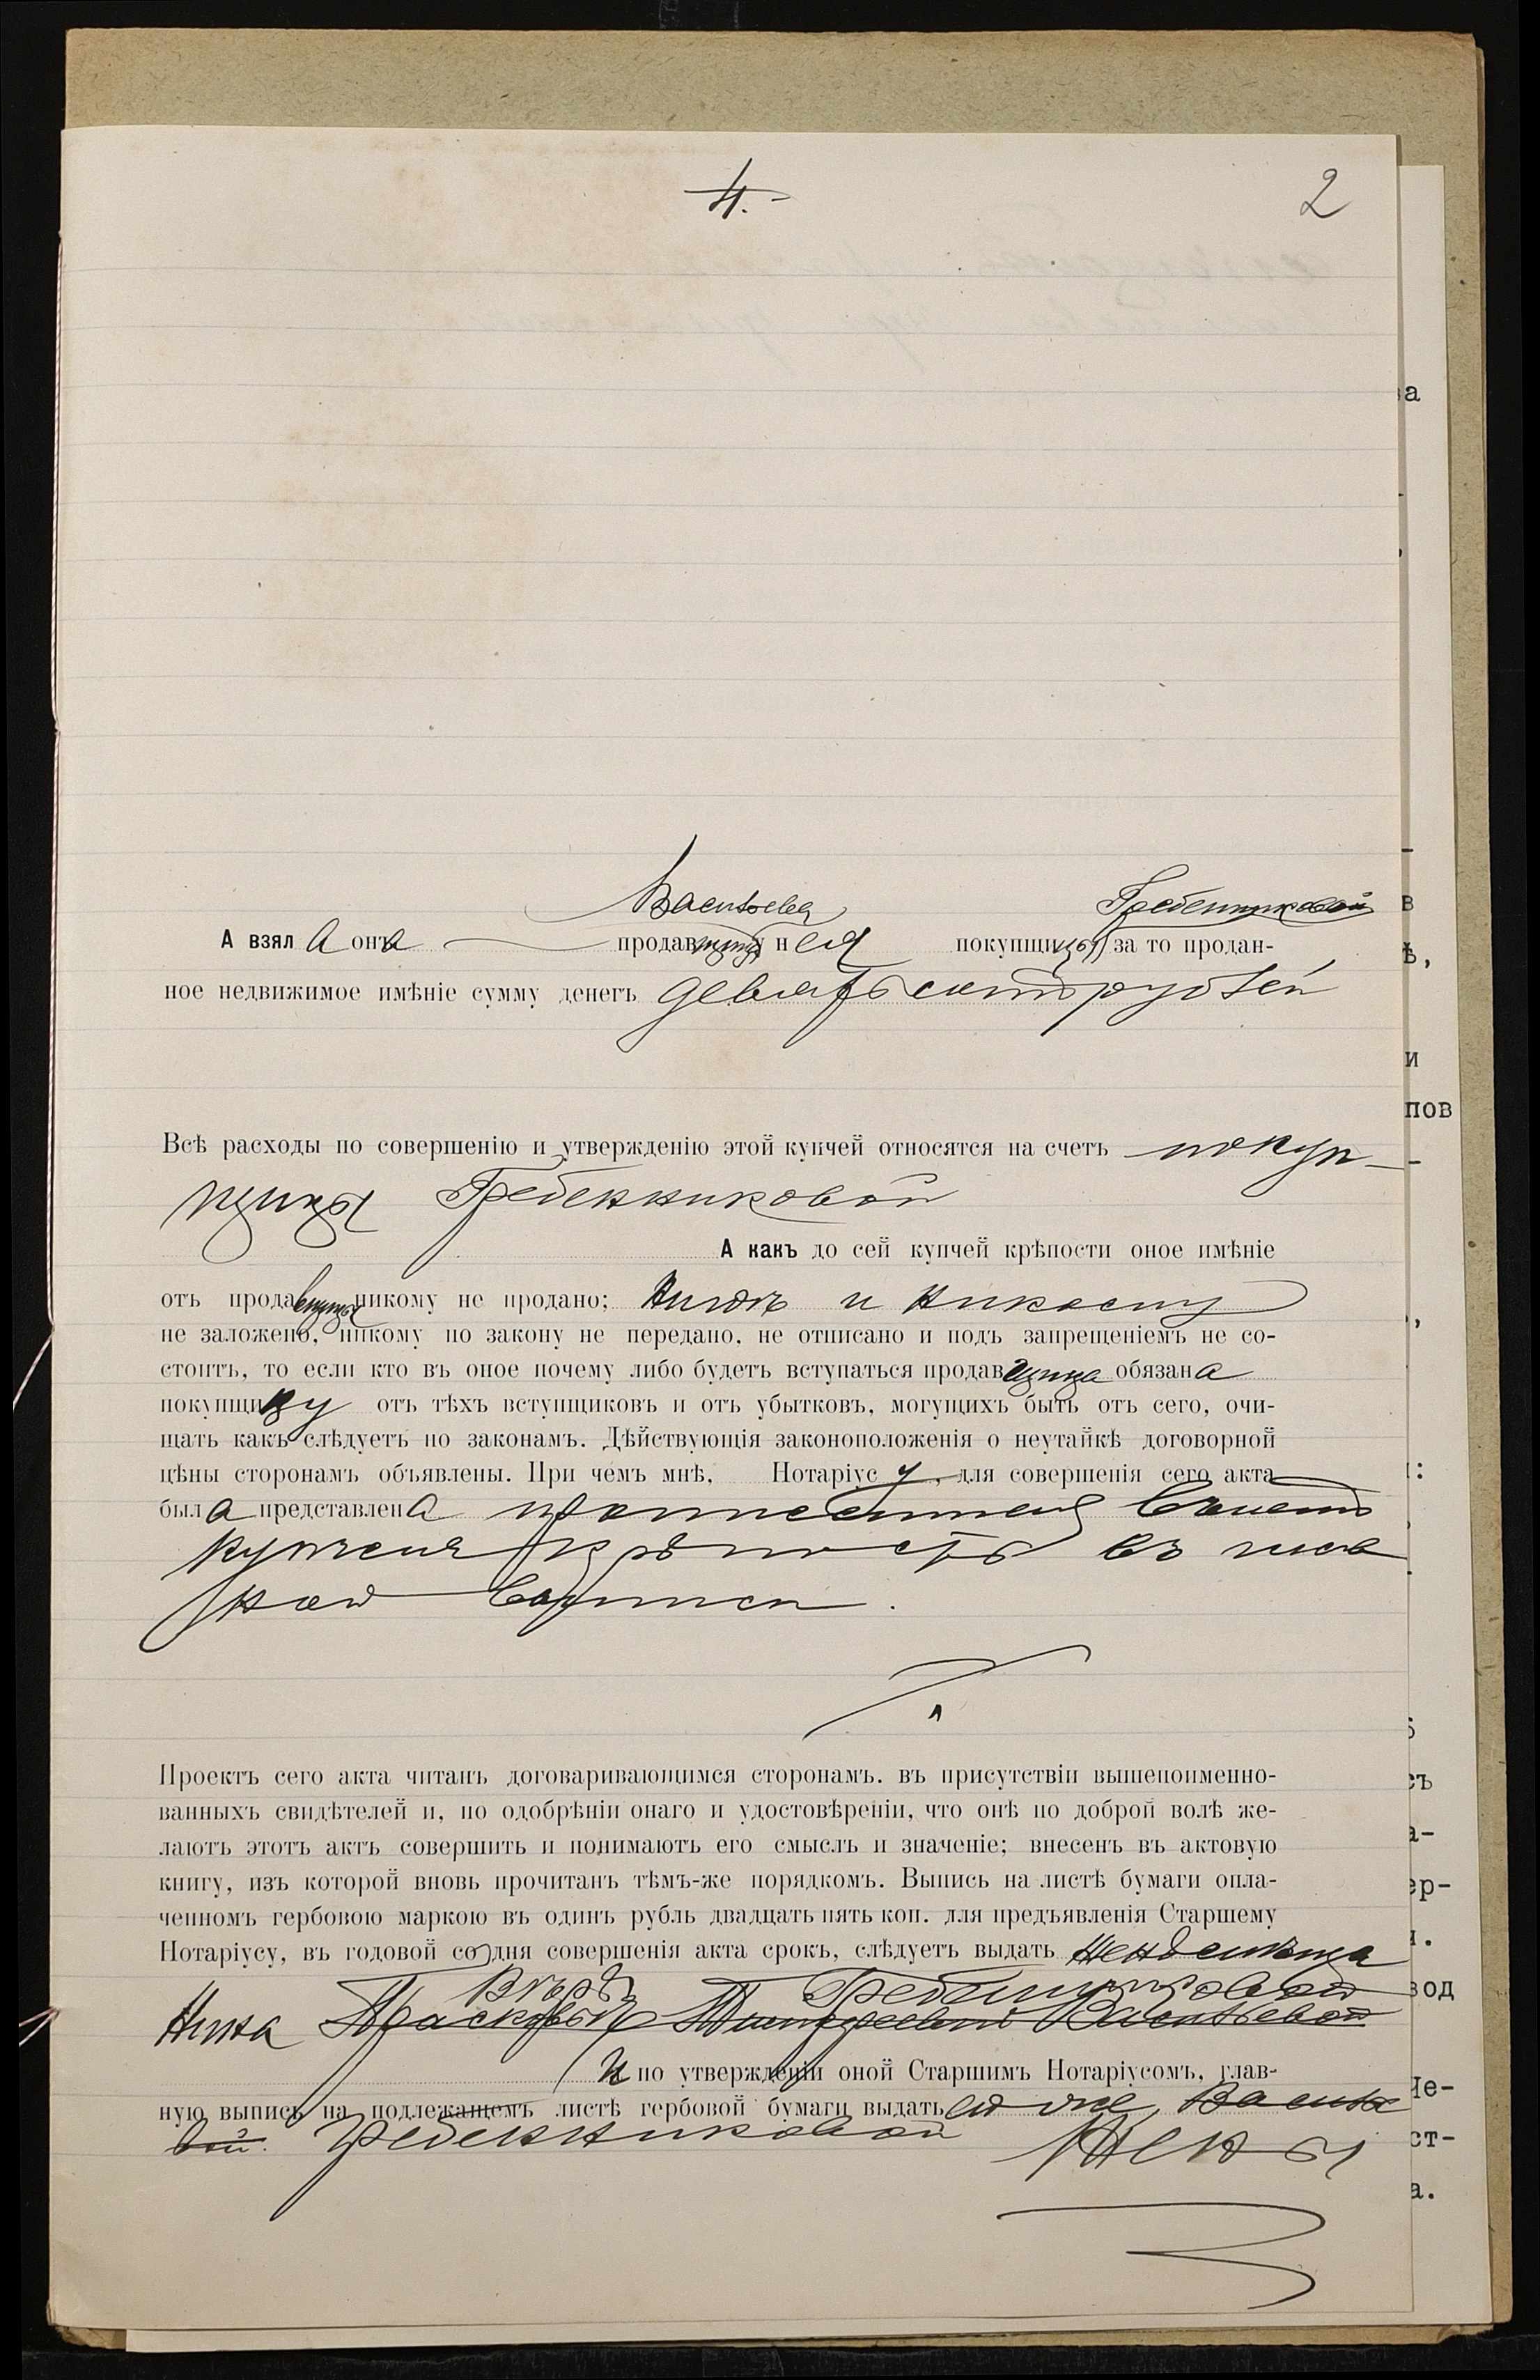 4.
2
Васильева Гребенниковой
А взяла она продавщица у нея покупщицы за то продан-
ное недвижимое имѣніе сумму денегъ девятьсотъ рублей
Всѣ расходы по совершенію и утвержденію этой купчей относятся на счетъ покуп-
щицы Гребенниковой
А какъ до сей купчей крѣпости оное имѣніе
отъ продавщицы никому не продано; и никому
не заложено, никому по закону не передано, не отписано и подъ запрещеніемъ не со-
стоитъ, то если кто въ оное почему либо будетъ вступаться продавщица обязана
покупщицу отъ тѣхъ вступщиковъ и отъ убытковъ, могущихъ быть отъ сего, очи-
щать какъ слѣдуетъ по законамъ. Дѣйствующія законоположенія о неутайкѣ договорной
цѣны сторонамъ объявлены. При чемъ мнѣ, Нотаріусу, для совершенія сего акта
была представлена
купчая крѣпость въ глав
ной выписи.
Проектъ сего акта читанъ договаривающимся сторонамъ. въ присутствіи вышепоименно-
ванныхъ свидѣтелей и, по одобрѣніи онаго и удостовѣреніи, что онѣ по доброй волѣ же-
лаютъ этотъ актъ совершить и понимаютъ его смыслъ и значеніе; внесенъ въ актовую
книгу, изъ которой вновь прочитанъ тѣмъ-же порядкомъ. Выпись на листѣ бумаги опла-
ченномъ гербовою маркою въ одинъ рубль двадцать пять коп. для предъявленія Старшему
Нотаріусу, въ годовой со дня совершенія акта срокъ, слѣдуетъ выдать
Гребенниковой
Прасковьи Васильевой
И по утвержденіи оной Старшимъ Нотаріусомъ, глав-
ную выпись на подлежащемъ листѣ гербовой бумаги выдать ей же, Василье
вой. Гребенниковой
а
в
ѣ,
и
пов
-
ст-
а.